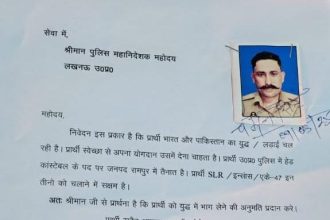 सेवा में,
श्रीमान पुलिस महानिदेशक महोदय
लखनऊ उ0प्र0
महोदय,
निवेदन इस प्रकार है कि प्रार्थी भारत और पाकिस्तान का युद्ध / लडाई चल
रही है। प्रार्थी स्वेच्छा से अपना योगदान उसमें देना चाहता है। प्रार्थी उ0प्र0 पुलिस में हेड
कांस्टेबल के पद पर जनपद रामपुर में तैनात है। प्रार्थी SLR / इन्सास / एके-47 इन
तीनो को चलाने में सक्षम है।
अतः श्रीमान जी से प्रार्थना है कि प्रार्थी को युद्ध में भाग लेने की अनुमति प्रदान करे